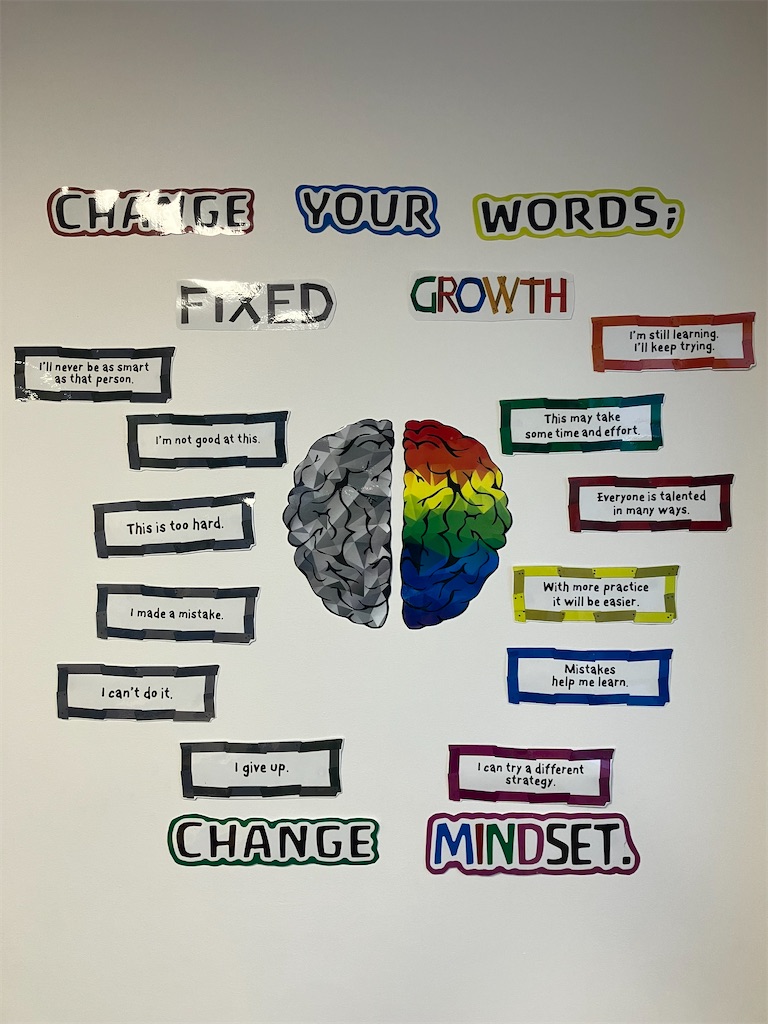 CHANGE YOUR WORDS;
FIXED
GROWTH
I'll never be as smart
as that person.
I'm not good at this.
This is too hard.
I made a mistake.
I can't do it.
I give up.
I'm still learning.
I'll keep trying.
This may take
some time and effort.
Everyone is talented
in many ways.
With more practice
it will be easier.
Mistakes
help me learn.
I can try a different
strategy.
CHANGE MINDSET.